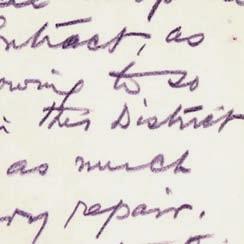 contract, as
owing to so
this District
as much
repair.